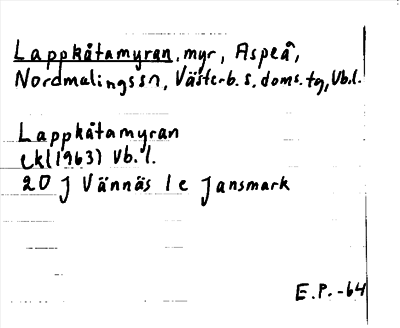 Lappkåtamyran, myr, Aspeå,
Nordmalingssn, Västerb. s. doms. tg, Vb.l.
Lappkåtamyran
ek (1963) Vb. l.
20 J Vännäs 1 e Jansmark
E.P. -64